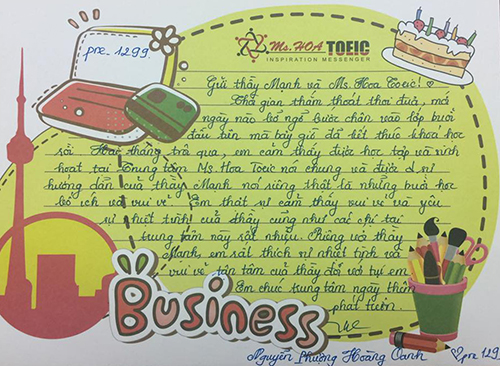 pre-1299
Ms.HOA TOEIC
INSPIRATION MESSENGER
Gửi thầy Mạnh và Ms. Hoa Toeic! ♡
Thời gian thấm thoát thoi đưa, mới
ngày nào bỡ ngỡ bước chân vào lớp buổi
đầu tiên mà bây giờ đã kết thúc khoá học
rồi. Hai tháng trôi qua, em cảm thấy được học tập và sinh
hoạt tại Trung tâm Ms Hoa Toeic nói chung và được sự
hướng dẫn của thầy Mạnh nói riêng thật là những buổi học
bổ ích và vui vẻ. Em thật sự cảm thấy vui vẻ và yêu
sự nhiệt tình của thầy cũng như các chị tại
trung tâm này rất nhiều. Riêng với thầy
Mạnh, em rất thích sự nhiệt tình và
vui vẻ tận tâm của thầy đối với tụi em.
Em chúc trung tâm ngày thêm
phát triển.
Business
Nguyễn Phương Hoàng Oanh ♡ pre 129